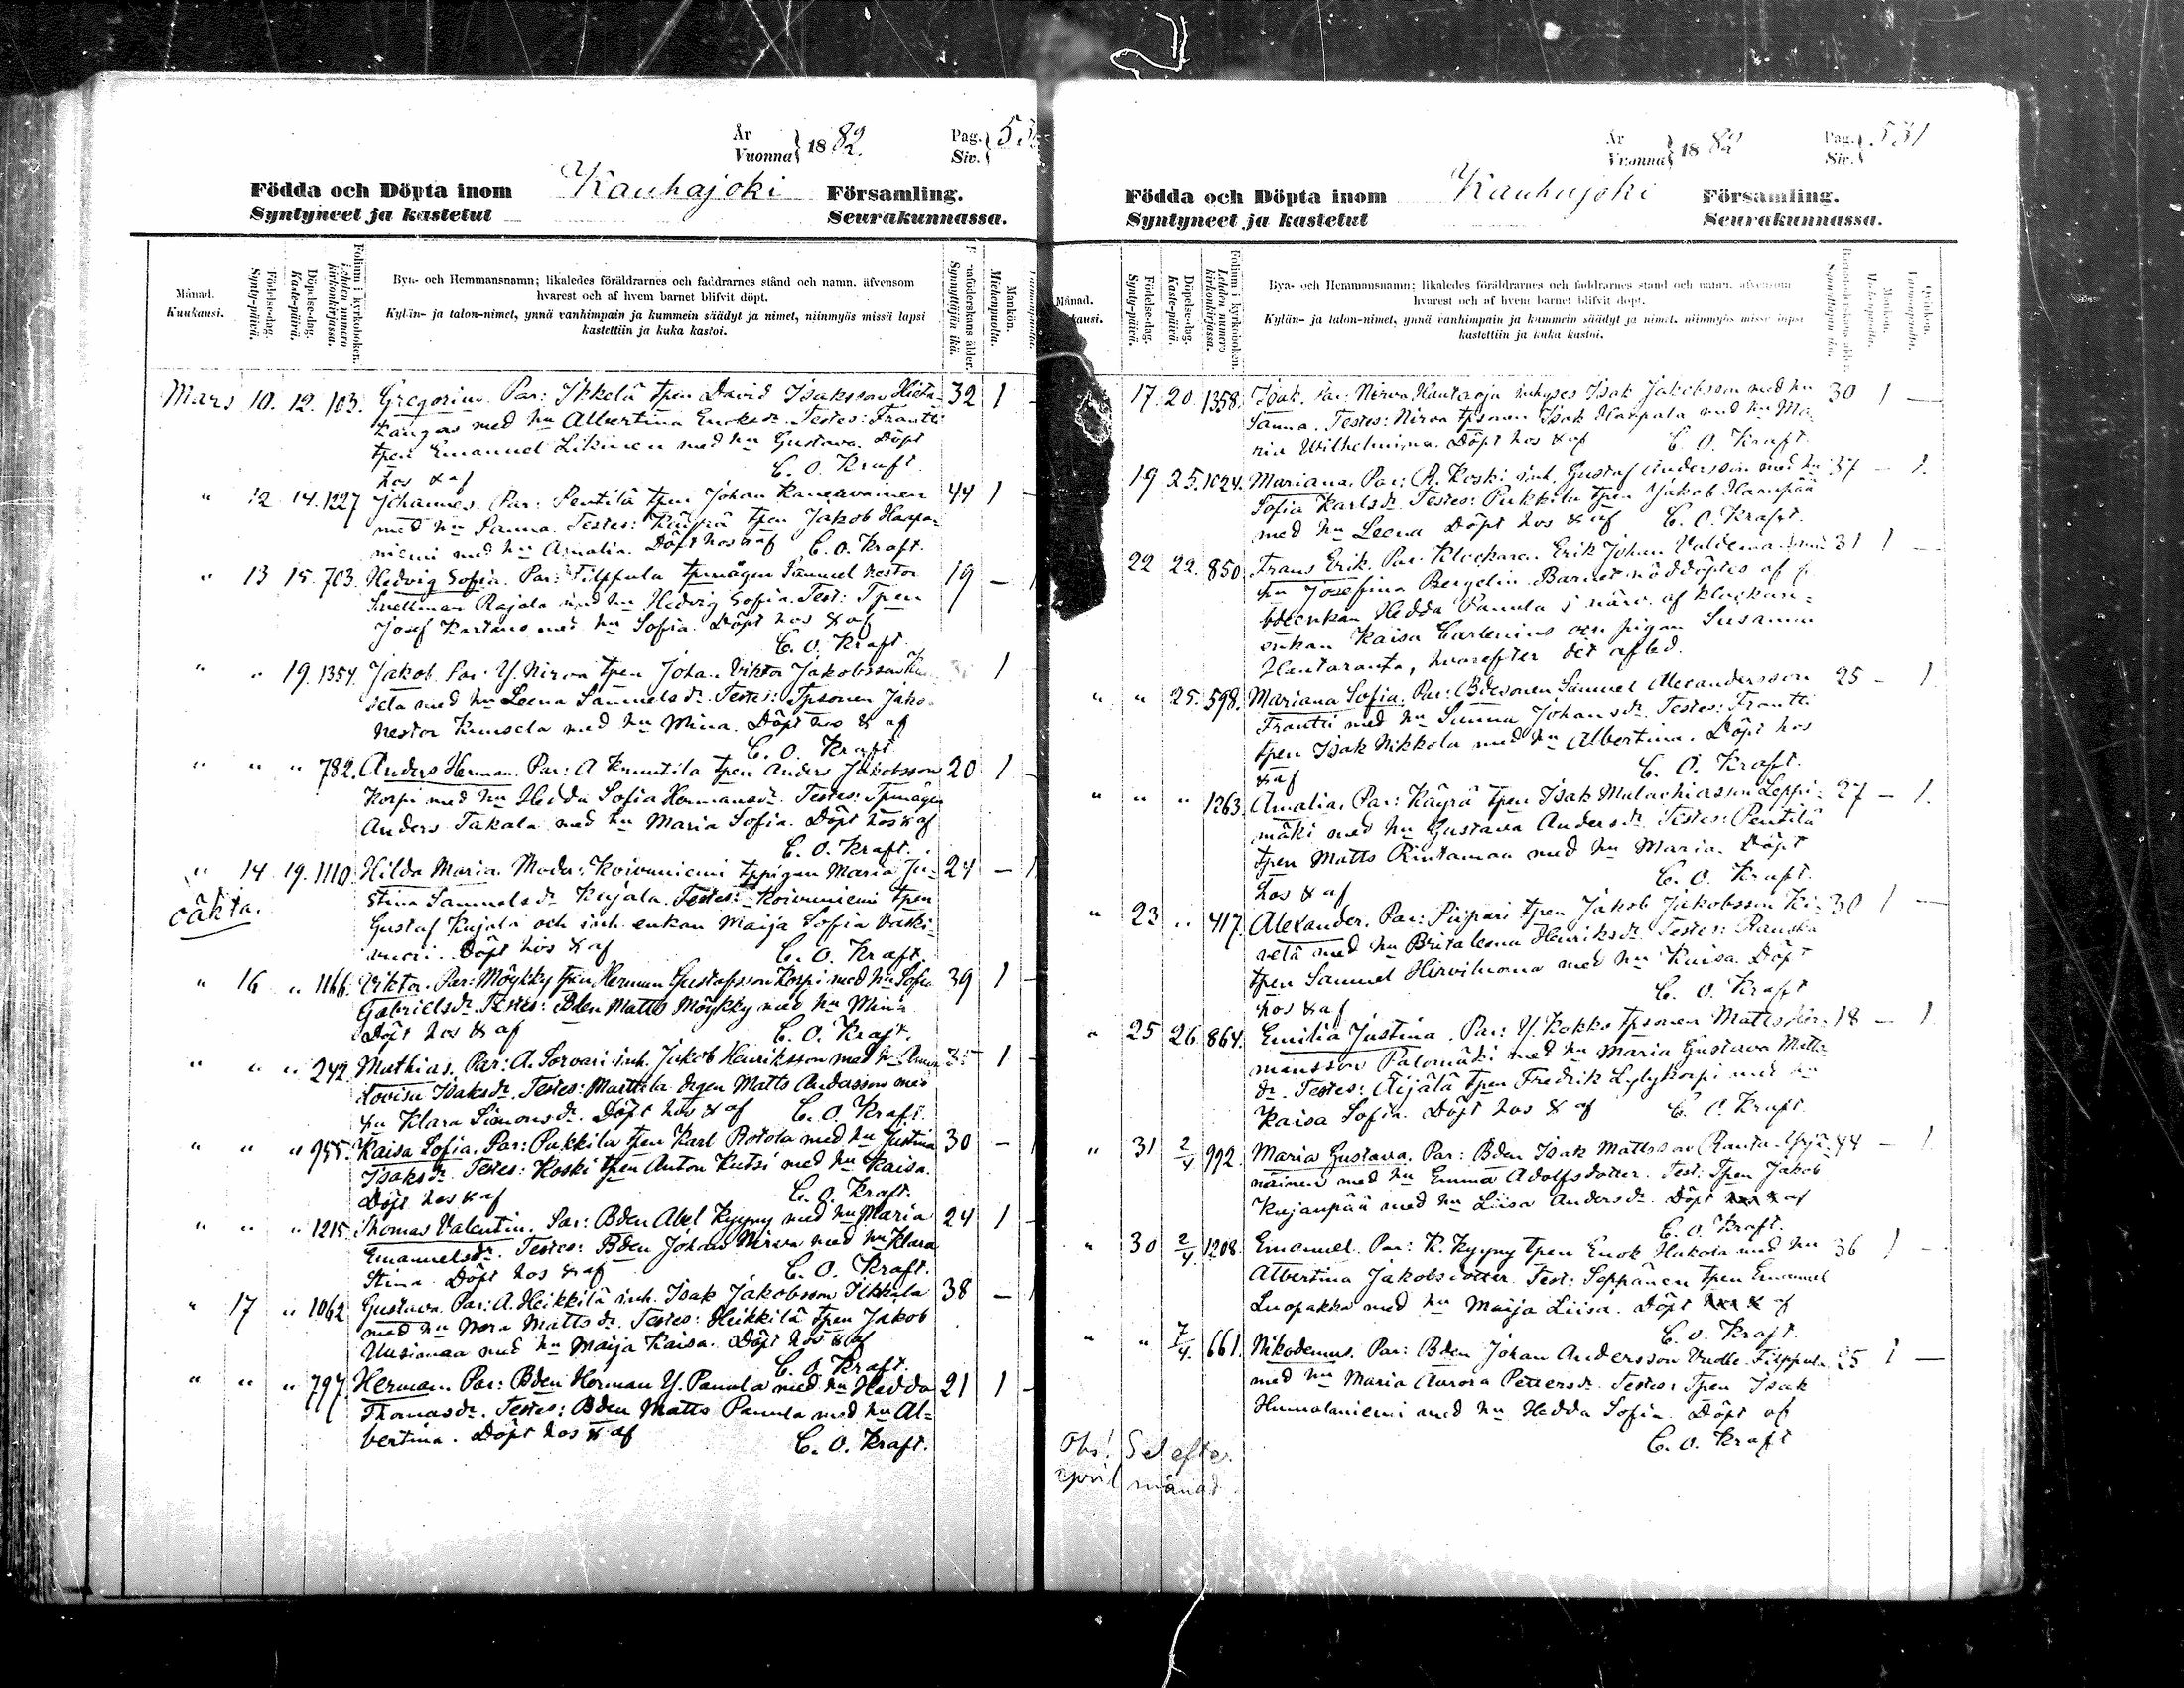 År
Vuonna } 1882.
Pag.
Siv. } 53
Födda och Döpta inom Kauhajoki Församling.
Syntyneet ja kastetut Seurakunnassa.
Månad.
Kuukausi.
Födelse-dag.
Synty-päivä.
Döpelse-dag.
Kaste-päivä.
Folium i kyrkoboken.
Lehden numero kirkonkirjassa.
Bya- och Hemmansnamn; likaledes föräldrarnes och faddrarnes stånd och namn, äfvensom
hvarest och af hvem barnet blifvit döpt.
Kylän- ja talon-nimet, ynnä vanhimpain ja kummein säädyt ja nimet, niinmyös missä lapsi
kastettiin ja kuka kastoi.
Synnyttäjän ikä.
Mankön.
Miehenpuolia.
Mars 10. 12. 103. Gregorius. Par: Ikkelä tpen David Isaksson Hieta- 32 1 -
kangas med hu Albertina Enoksdr. Testes: Frantti
tpen Emanuel Likinen med hu Gustava. Döpt
hos & af C. O. Kraft.
" 12 14. 1227 Johannes. Par: Pentilä tpen Johan 44 1 -
med hu Sanna. Testes: Käyrä tpen Jakob Harja-
niemi med hu Amalia. Döpt hos & af C. O. Kraft.
" 13 15. 703. Hedvig Sofia. Par: Filppula tpmågen Samuel Nestor 19 - 1
Snellman Rajala med hu Hedvig Sofia. Test: Tpen
Josef Kartano med hu Sofia. Döpt hos & af
C. O. Kraft.
" " 19. 1354. Jakob. Par: Y. Nirva tpen Johan Viktor Jakobsson 1
sela med hu Leena Samuelsdr. Testes: Tpsonen Jakob
Nestor Kumsela med hu Mina. Döpt hos & af
C. O. Kraft.
" " " 782. Anders Herman. Par: A. Knuutila tpen Anders Jakobsson 20 1 -
Korpi med hu Hedda Sofia Hermansdr. Testes: Tpmågen
Anders Takala med hu Maria Sofia. Döpt hos & af
C. O. Kraft.
" 14 19. 1110. Hilda Maria. Moder: Koivuniemi tppigan Maria Ju- 24 - 1
oäkta. stina Samuelsdr Kujala. Testes: Koivuniemi tpen
Gustaf Kujala och inh. enkan Maija Sofia Vaski-
vuori. Döpt hos & af C. O. Kraft.
" 16 " 1166. Viktor. Par: Möykky tpen Herman Gustafsson Korpi med hu Sofia 39 1 -
Gabrielsdr. Testes: Bden Matts Möykky med hu Mina
Döpt hos & af C. O. Kraft.
" " " 242. Mathias. Par: A. Sorvari inh. Jakob Henriksson med hu Anna 1 -
Lovisa Isaksdr. Testes: Marttila drgen Matts Andersson med
hu Klara Simonsdr. Döpt hos & af C. O. Kraft.
" " " 955. Kaisa Sofia. Par: Pukkila tpen Karl Rotola med hu Justina 30 -
Isaksdr. Testes: Koski tpen Anton Kutsi med hu Kaisa.
Döpt hos & af C. O. Kraft.
" " " 1215. Thomas Valentin. Par: Bden Abel Kyyny med hu Maria 24 1 -
Emanuelsdr. Testes: Bden Johan Nirva med hu Klara
Stina. Döpt hos & af C. O. Kraft.
" 17 " 1062 Gustava. Par: A. Heikkilä inh. Isak Jakobsson Ikkala 38 -
med hu Vera Mattsdr. Testes: Heikkilä tpen Jakob
Uusimaa med hu Maija Kaisa. Döpt hos & af
C. O. Kraft.
" " " 797. Herman. Par: Bden Herman Y. Panula med hu Hedda 21 1 -
Thomasdr. Testes: Bden Matts Panula med hu Al-
bertina. Döpt hos & af C. O. Kraft.
År
Vuonna } 1882
Pag.
Siv. } 531
Födda och Döpta inom Kauhajoki Församling.
Syntyneet ja kastetut Seurakunnassa.
Månad.
Födelse-dag.
Synty-päivä.
Döpelse-dag.
Kaste-päivä.
Folium i kyrkoboken.
Lehden numero kirkonkirjassa.
Bya- och Hemmansnamn; likaledes föräldrarnes och faddrarnes stånd och namn, äfvensom
hvarest och af hvem barnet blifvit döpt.
Kylän- ja talon-nimet, ynnä vanhimpain ja kummein säädyt ja nimet, niinmyös missä lapsi
kastettiin ja kuka kastoi.
17. 20. 1358. Isak. Par: Nirva Hautaoja inhyses Isak Jakobsson med hu 30 1 -
Sanna. Testes: Nirva tpsonen Isak Harpala med hu Ma-
ria Wilhelmina. Döpt hos & af C. O. Kraft.
19 25. 1024. Mariana. Par: A. Koski inh. Gustaf Andersson med hu 37 - 1.
Sofia Karlsdr. Testes: Pukkila tpen Jakob Haanpää
med hu Leena Döpt hos & af C. O. Kraft.
22 22. 850. Frans Erik. Par: Klockaren Erik Johan Valdemar 31 1 -
hu Josefina Bergelin. Barnet nöddöptes af
bdeenkan Hedda Panula i närv. af klockare-
enkan Kaisa Carlenius och pigan Susanna
Hautaranta, hvarefter det afled.
" " 25. 598. Mariana Sofia. Par: Bdesonen Samuel Alexandersson 25 - 1
Frantti med hu Sanna Johansdr. Testes: Frantti
tpen Isak Nikkola med hu Albertina. Döpt hos
& af C. O. Kraft.
" " " 1263. Amalia. Par: Käyrä tpen Isak Malachiasson Leppi- 27 - 1.
mäki med hu Gustava Andersdr. Testes: Pentilä
tpen Matts Rintamaa med hu Maria. Döpt
hos & af C. O. Kraft.
" 23 " 417. Alexander. Par: Piipari tpen Jakob Jakobsson Ki- 30 1 -
velä med hu Brita Leena Henriksdr. Testes: Rauska
tpen Samuel Hirviluoma med hu Kaisa. Döpt
hos & af C. O. Kraft
" 25 26. 864. Emilia Justina. Par: Y. Kokko tpsonen Matts Her- 18 - 1
mansson Palomäki med hu Maria Gustava Matts-
dr. Testes: Äijälä tpen Fredrik Lylykorpi med hu
Kaisa Sofia. Döpt hos & af C. O. Kraft.
" 31 2/4 992. Maria Gustava. Par: Bden Isak Mattsson Ranta-Yrjä- 44 - 1
näinen med hu Emma Adolfsdotter. Test: Tpen Jakob
Kujanpää med hu Liisa Andersdr. Döpt hos & af
C. O. Kraft.
" 30 2/4. 1208. Emanuel. Par: K. Kyyny tpen Enok Hakola med hu 36 1 -
Albertina Jakobsdotter. Test: Seppänen tpen Emanuel
Luopakka med hu Maija Liisa. Döpt hos & af
C. O. Kraft.
" " 7/4. 661. Nikodemus. Par: Bden Johan Andersson Filppula 25 1 -
med hu Maria Aurora Pettersdr. Testes: Tpen Isak
Hummalaniemi med hu Hedda Sofia. Döpt af
C. O. Kraft
Obs! Se efter
april månad